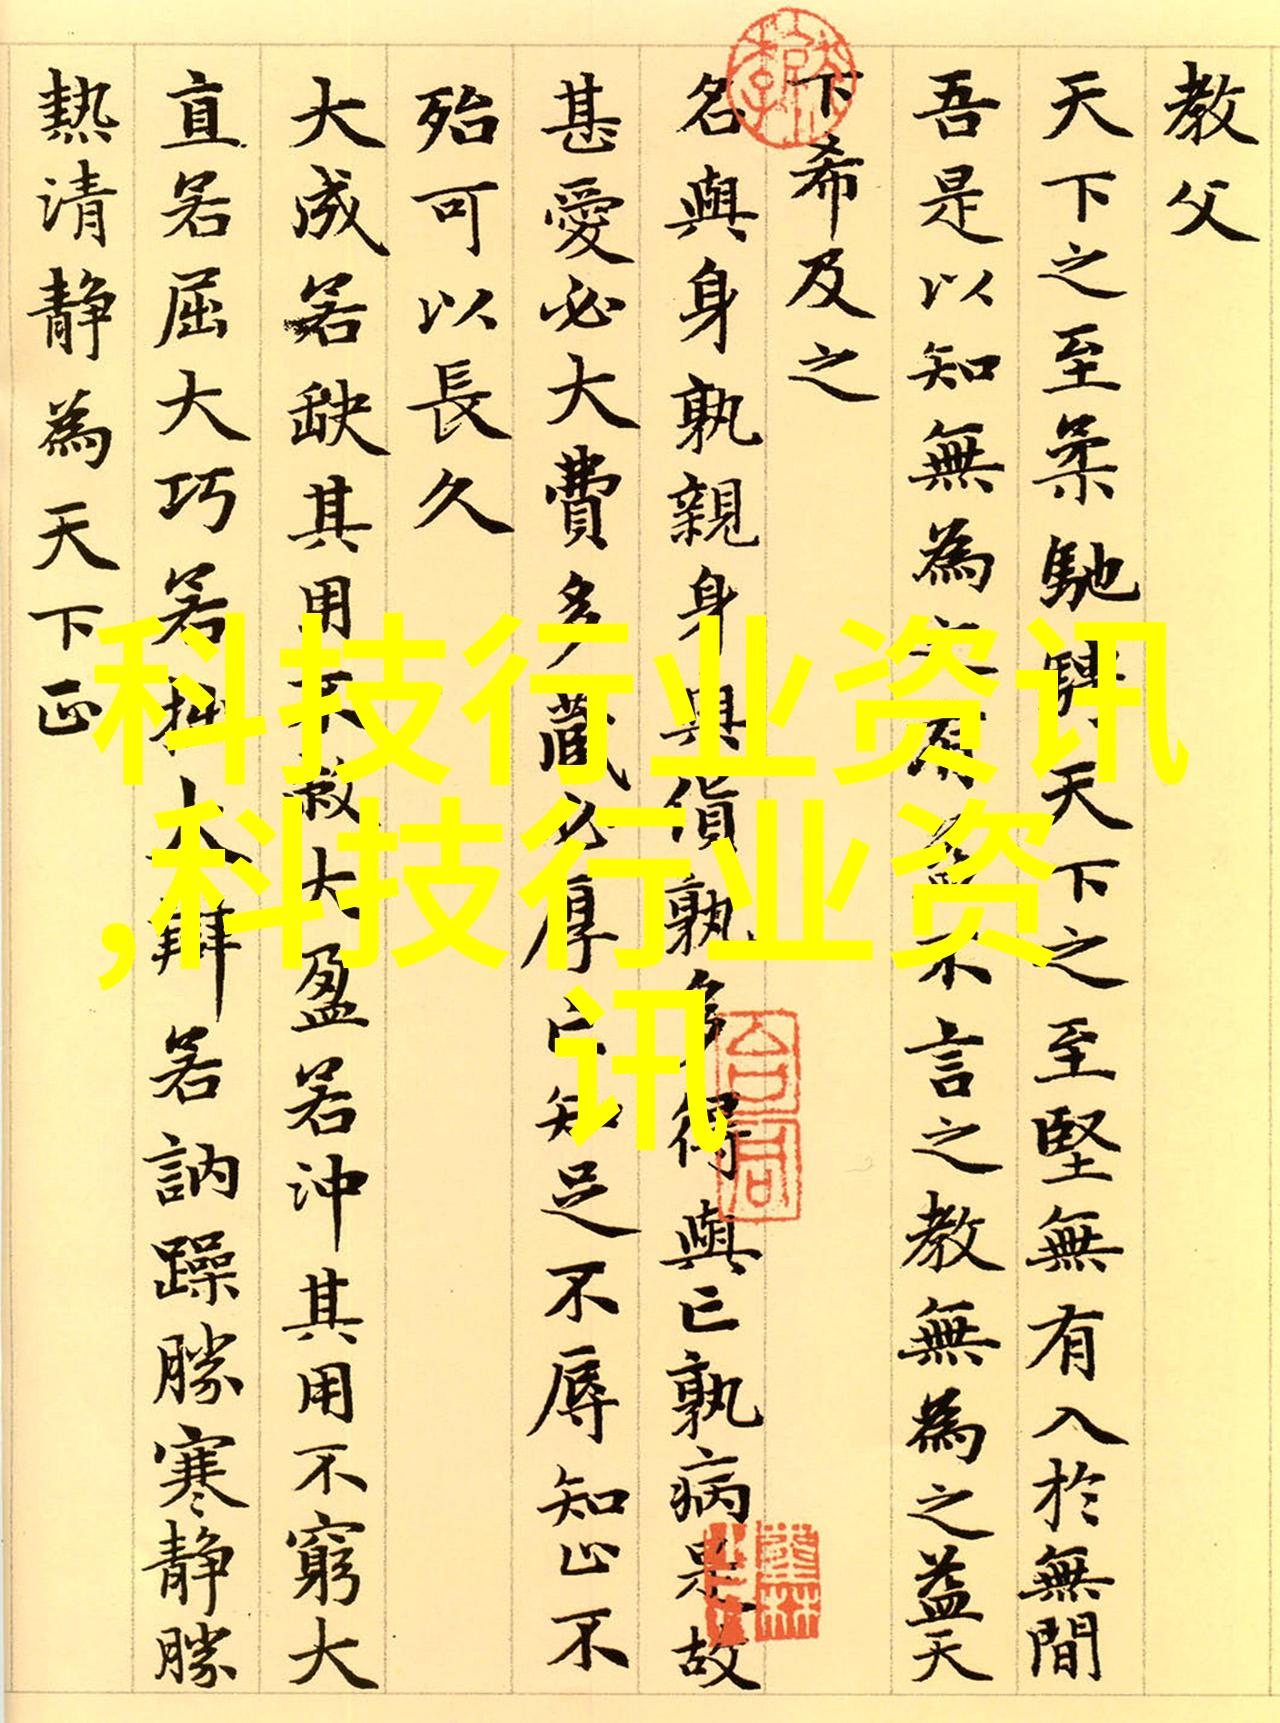 教父
天下之至柔馳騁天下之至堅無有入於無間
吾是以知無為之有益不言之教無為之益天
下希及之
名與身孰親身與貨孰多得與亡孰病是故
甚愛必大費多藏必厚亡知足不辱知止不
殆可以長久
大成若缺其用不敝大盈若沖其用不窮大
直若屈大巧若拙大辯若訥躁勝寒靜勝
熱清靜為天下正
科技行业资讯
,科技行业资
讯